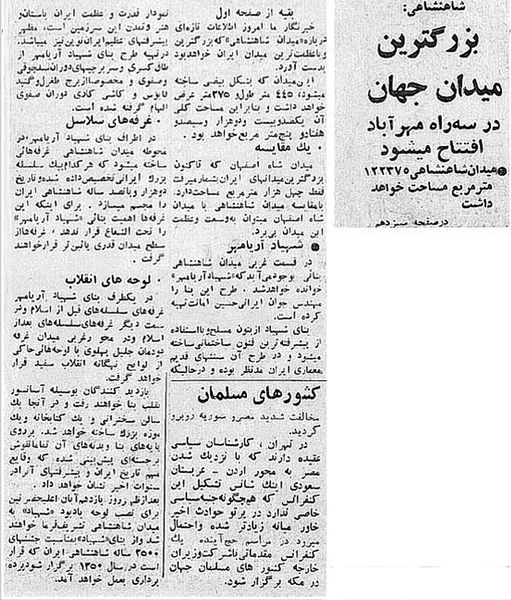 شاهنشاهی:
بزرگترین
میدان جهان
در سه‌راه مهرآباد
افتتاح میشود
میدان شاهنشاهی ۱۲۲۳۷۵
مترمربع مساحت خواهد
داشت
در صفحه سیزدهم
بقیه از صفحه اول
خبرنگار ما امروز اطلاعات تازه‌ای
درباره «میدان شاهنشاهی» که بزرگترین
و باعظمت‌ترین میدان ایران خواهد بود
بدست آورد.
این میدان که بشکل بیضی ساخته
میشود، ۴۴۵ متر طول و ۲۷۵ متر عرض
خواهد داشت و بنابراین مساحت کلی
آن یکصد و بیست و دو هزار و سیصد و
هفتاد و پنج متر مربع خواهد بود.
• یك مقایسه
میدان شاه اصفهان که تاکنون
بزرگترین میدانهای ایران شمار میرفت
فقط چهل هزار متر مربع مساحت دارد.
با مقایسه میدان شاهنشاهی با میدان
شاه اصفهان میتوان به وسعت وعظمت
این میدان پی برد.
• شهیاد آریامهر
در قسمت غربی میدان شاهنشاهی
بنائی بوجود می‌آید که «شهیاد آریامهر»
خوانده خواهد شد. طرح این بنا را
مهندس جوان ایرانی حسین امانت تهیه
کرده است.
بنای شهیاد از بتون مسلح و با استفاده
از پیشرفته‌ترین فنون ساختمانی ساخته
میشود و در طرح آن سنتهای قدیم
معماری ایران مدنظر بوده و درحالیکه
کشورهای مسلمان
مخالفت شدید مصر و سوریه روبرو
گردید.
در تهران، کارشناسان سیاسی
عقیده دارند که با نزدیك شدن
مصر به محور اردن – عربستان
سعودی اینك شانس تشکیل این
کنفرانس که هیچگونه جنبه سیاسی
خاصی ندارد در پرتو حوادث اخیر
خاور میانه زیادتر شده واحتمال
میرود در مراسم حج آینده یك
کنفرانس مقدماتی باشرکت وزیران
خارجه کشور های مسلمان جهان
در مکه برگزار شود.
نمودار قدرت و عظمت ایران باستان، و
هنر و تمدن این سرزمین است، مظهر
پیشرفتهای عظیم ایران نوین نیز میباشد.
در تهیه طرح بنای شهیاد آریامهر از
طاق کسری و سر برجیهای دوران سلجوقی
و صفوی و مخصوصا از برج طغرل و گنبد
قابوس و کاشی کاری دوران صفوی
الهام گرفته شده است.
• غرفه‌های سلاسل
در اطراف بنای شهیاد آریامهر، در
محوطه میدان شاهنشاهی غرفه‌هائی
ساخته میشود که هر کدام بیك سلسله
بزرك ایرانی تخصیص داده شده و تاریخ
دوهزار و پانصد ساله شاهنشاهی ایران
را مجسم میسازد. برای اینکه این
غرفه‌ها اهمیت بنائی «شهیاد آریامهر»
را تحت الشعاع قرار ندهد، غرفه‌ها از
سطح میدان قدری پائین‌تر قرار خواهند
گرفت.
• لوحه های انقلاب
در یکطرف بنای شهیاد آریامهر
غرفه‌های سلسله‌های قبل از اسلام و در
سمت دیگر غرفه‌های سلسله‌های بعد از
اسلام و در محور غربی میدان غرفه
دودمان جلیل پهلوی با لوحه‌هائی حاکی
از لوایح نهگانه انقلاب سفید قرار
خواهد گرفت.
بازدید کنندگان بوسیله آسانسور
بقلب بنا خواهند رفت و در آنجا یك
سالن سخنرانی و یك کتابخانه و یك
موزه بزرك ساخته خواهد شد. بر روی
پایه‌های بنا و بدنه‌های آن تماما نقوش
برجسته‌ای پیش‌بینی شده که وقایع
مهم تاریخ ایران و پیشرفتهای آنرا در
سنوات اخیر نشان خواهد داد.
بعدازظهر روز یازدهم آبان اعلیحضرتین
برای نصب لوحه یادبود «شهیاد» به
میدان شاهنشاهی تشریف‌فرما خواهند
شد و از بنای «شهیاد» بمناسبت جشنهای
۲۵۰۰ ساله شاهنشاهی ایران که قرار
است در سال ۱۳۵۰ برگزار شود پرده
برداری بعمل خواهد آمد.